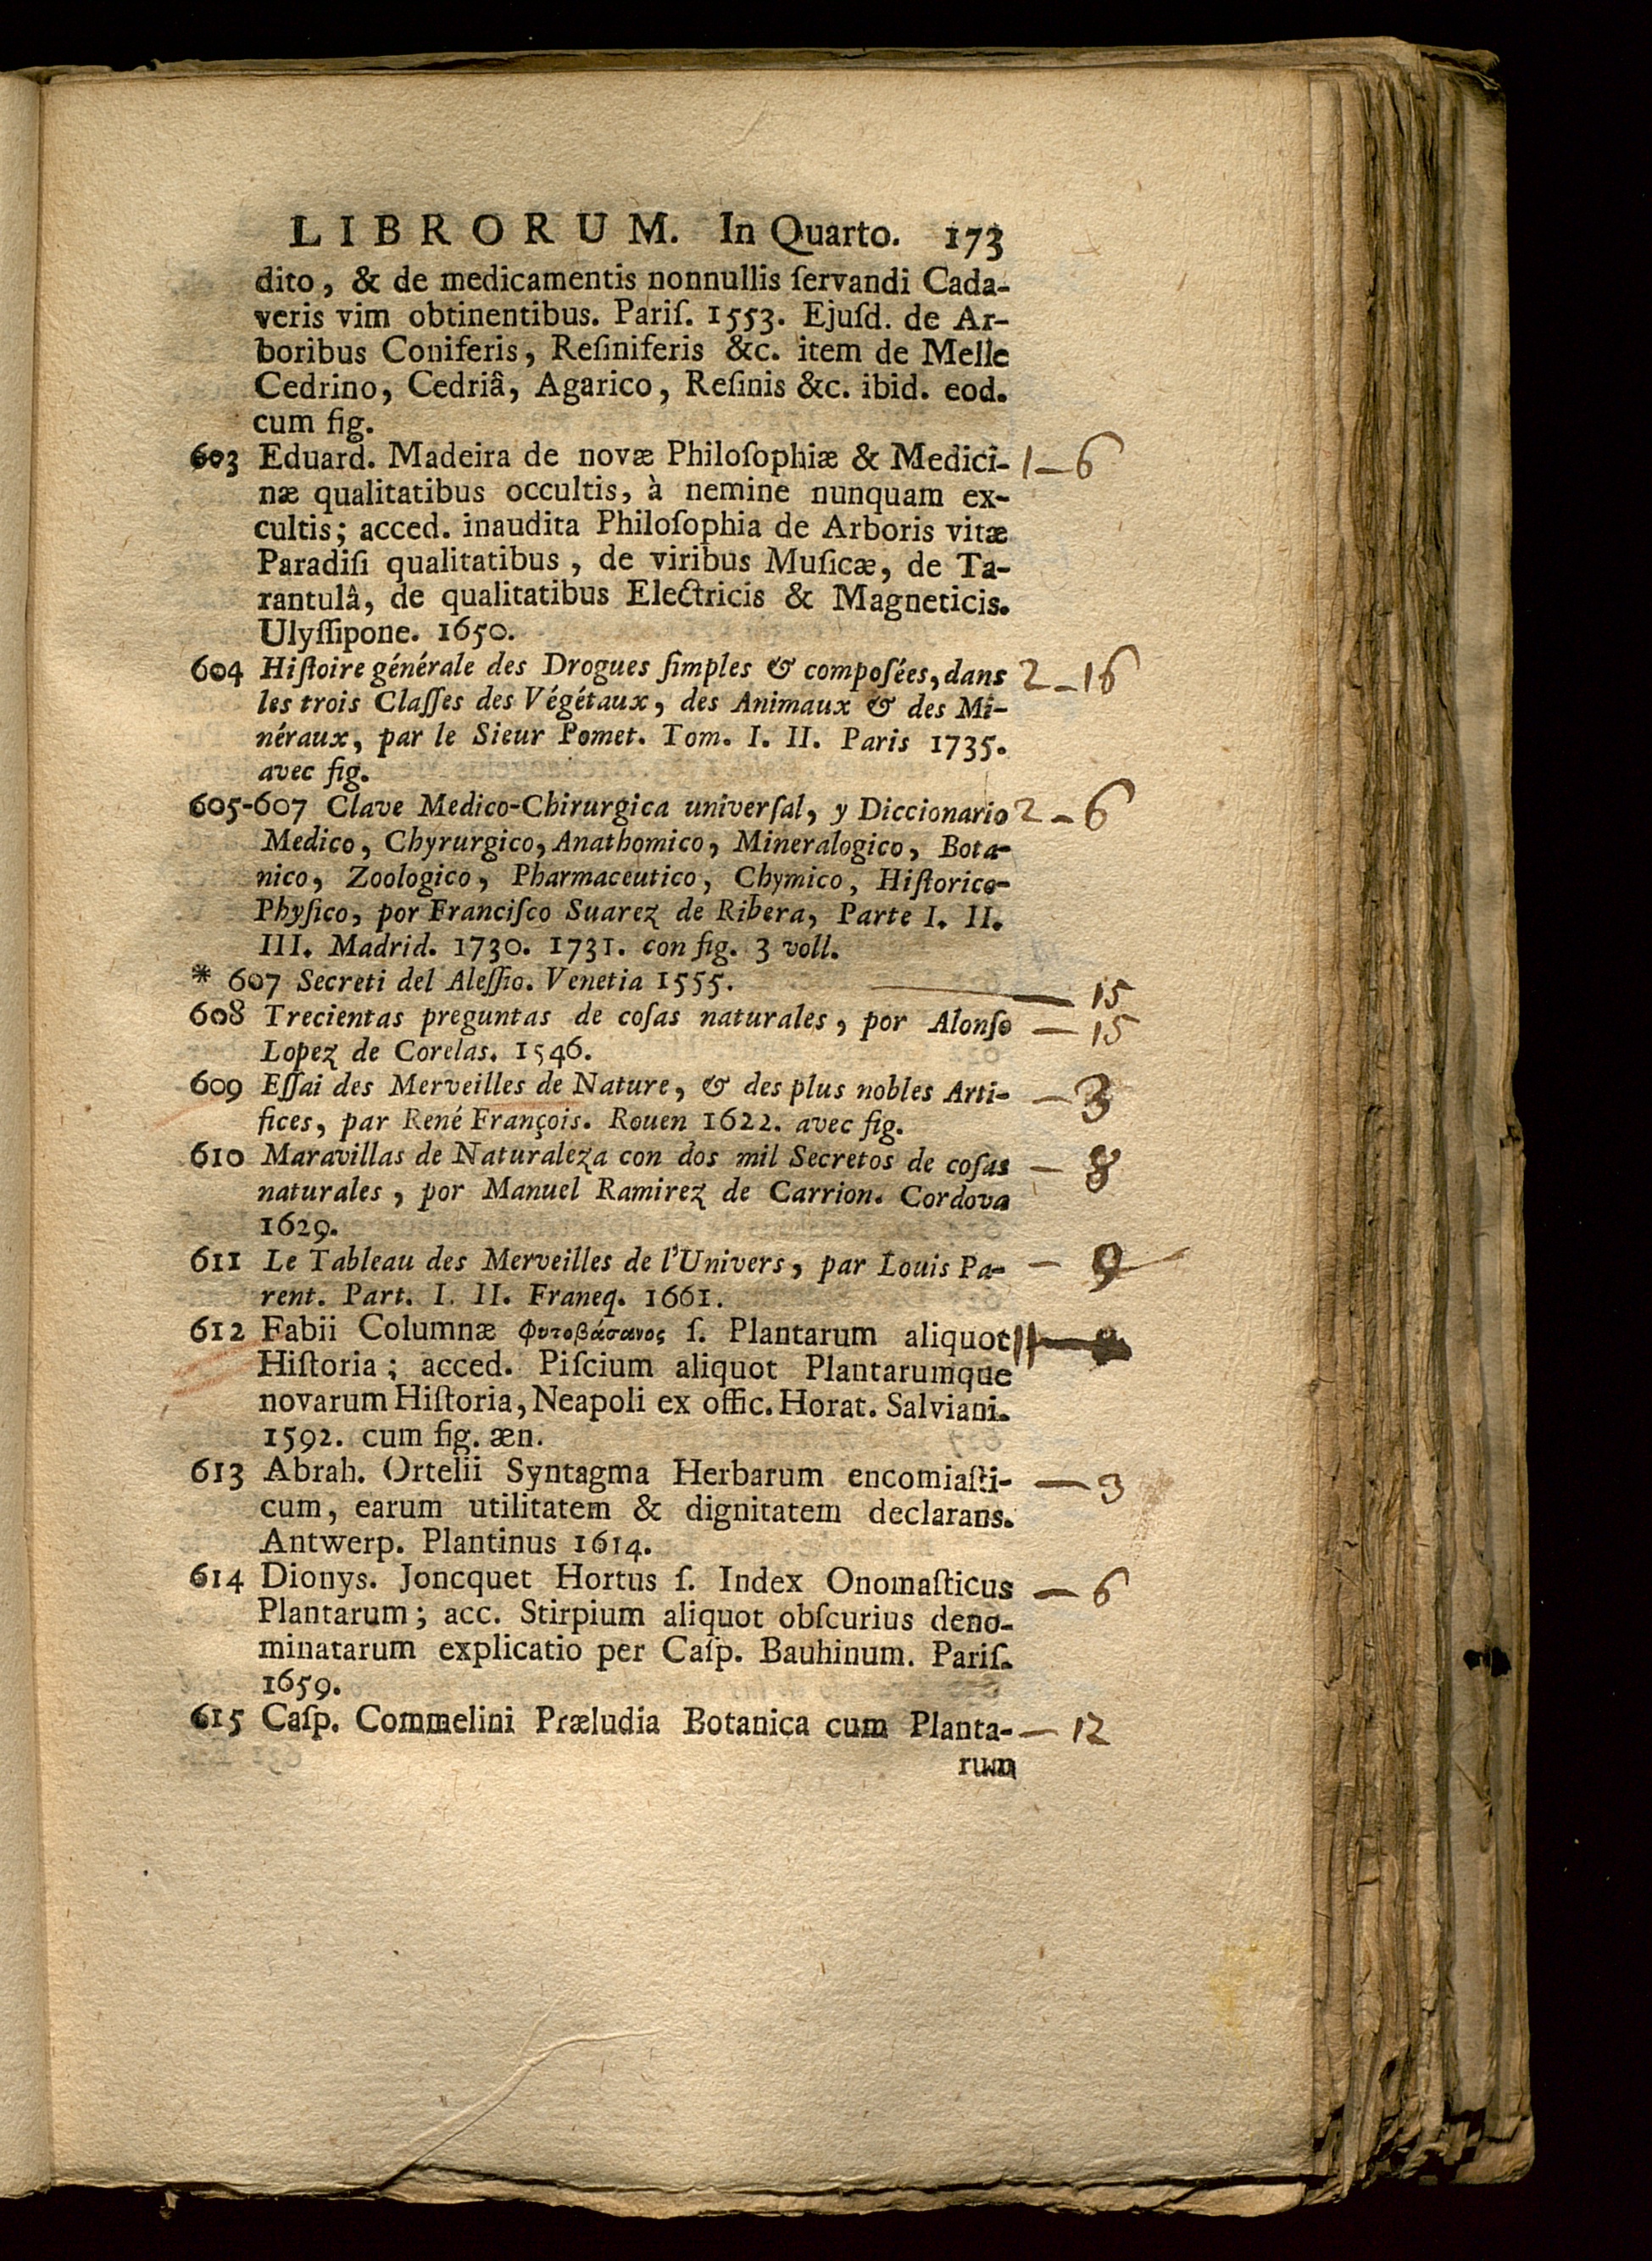 LIBRORUM. In Quarto. 173
dito, & de medicamentis nonnullis ſervandi Cada-
veris vim obtinentibus. Pariſ. 1553. Ejuſd. de Ar-
boribus Coniferis, Reſiniferis &c. item de Melle
Cedrino, Cedriâ, Agarico, Reſinis &c. ibid. eod.
cum fig.
603 Eduard. Madeira de novæ Philoſophiæ & Medici- 1 — 6
næ qualitatibus occultis, à nemine nunquam ex-
cultis; acced. inaudita Philoſophia de Arboris vitæ
Paradiſi qualitatibus, de viribus Muſicæ, de Ta-
rantulâ, de qualitatibus Electricis & Magneticis.
Ulyſſipone. 1650.
604 Hiſtoire générale des Drogues ſimples & compoſées, dans 2 — 16
les trois Claſſes des Végétaux, des Animaux & des Mi-
néraux, par le Sieur Pomet. Tom. I. II. Paris 1735.
avec fig.
605-607 Clave Medico-Chirurgica univerſal, y Diccionario 2 — 6
Medico, Chyrurgico, Anathomico, Mineralogico, Bota-
nico, Zoologico, Pharmaceutico, Chymico, Hiſtorico-
Phyſico, por Franciſco Suarez de Ribera, Parte I. II.
III. Madrid. 1730. 1731. con fig. 3 voll.
* 607 Secreti del Aleſſio. Venetia 1555. — 15
608 Trecientas preguntas de coſas naturales, por Alonſo — 15
Lopez de Corelas. 1546.
609 Eſſai des Merveilles de Nature, & des plus nobles Arti- — 3
fices, par René François. Rouen 1622. avec fig.
610 Maravillas de Naturaleza con dos mil Secretos de coſas — 8
naturales, por Manuel Ramirez de Carrion. Cordova
1629.
611 Le Tableau des Merveilles de l'Univers, par Louis Pa- — 9
rent. Part. I. II. Franeq. 1661.
612 Fabii Columnæ Φυτοβάσανος ſ. Plantarum aliquot
Hiſtoria; acced. Piſcium aliquot Plantarumque
novarum Hiſtoria, Neapoli ex offic. Horat. Salviani.
1592. cum fig. æn.
613 Abrah. Ortelii Syntagma Herbarum encomiaſti- — 3
cum, earum utilitatem & dignitatem declarans.
Antwerp. Plantinus 1614.
614 Dionys. Joncquet Hortus ſ. Index Onomaſticus — 6
Plantarum; acc. Stirpium aliquot obſcurius deno-
minatarum explicatio per Caſp. Bauhinum. Pariſ.
1659.
615 Caſp. Commelini Præludia Botanica cum Planta- — 12
rum